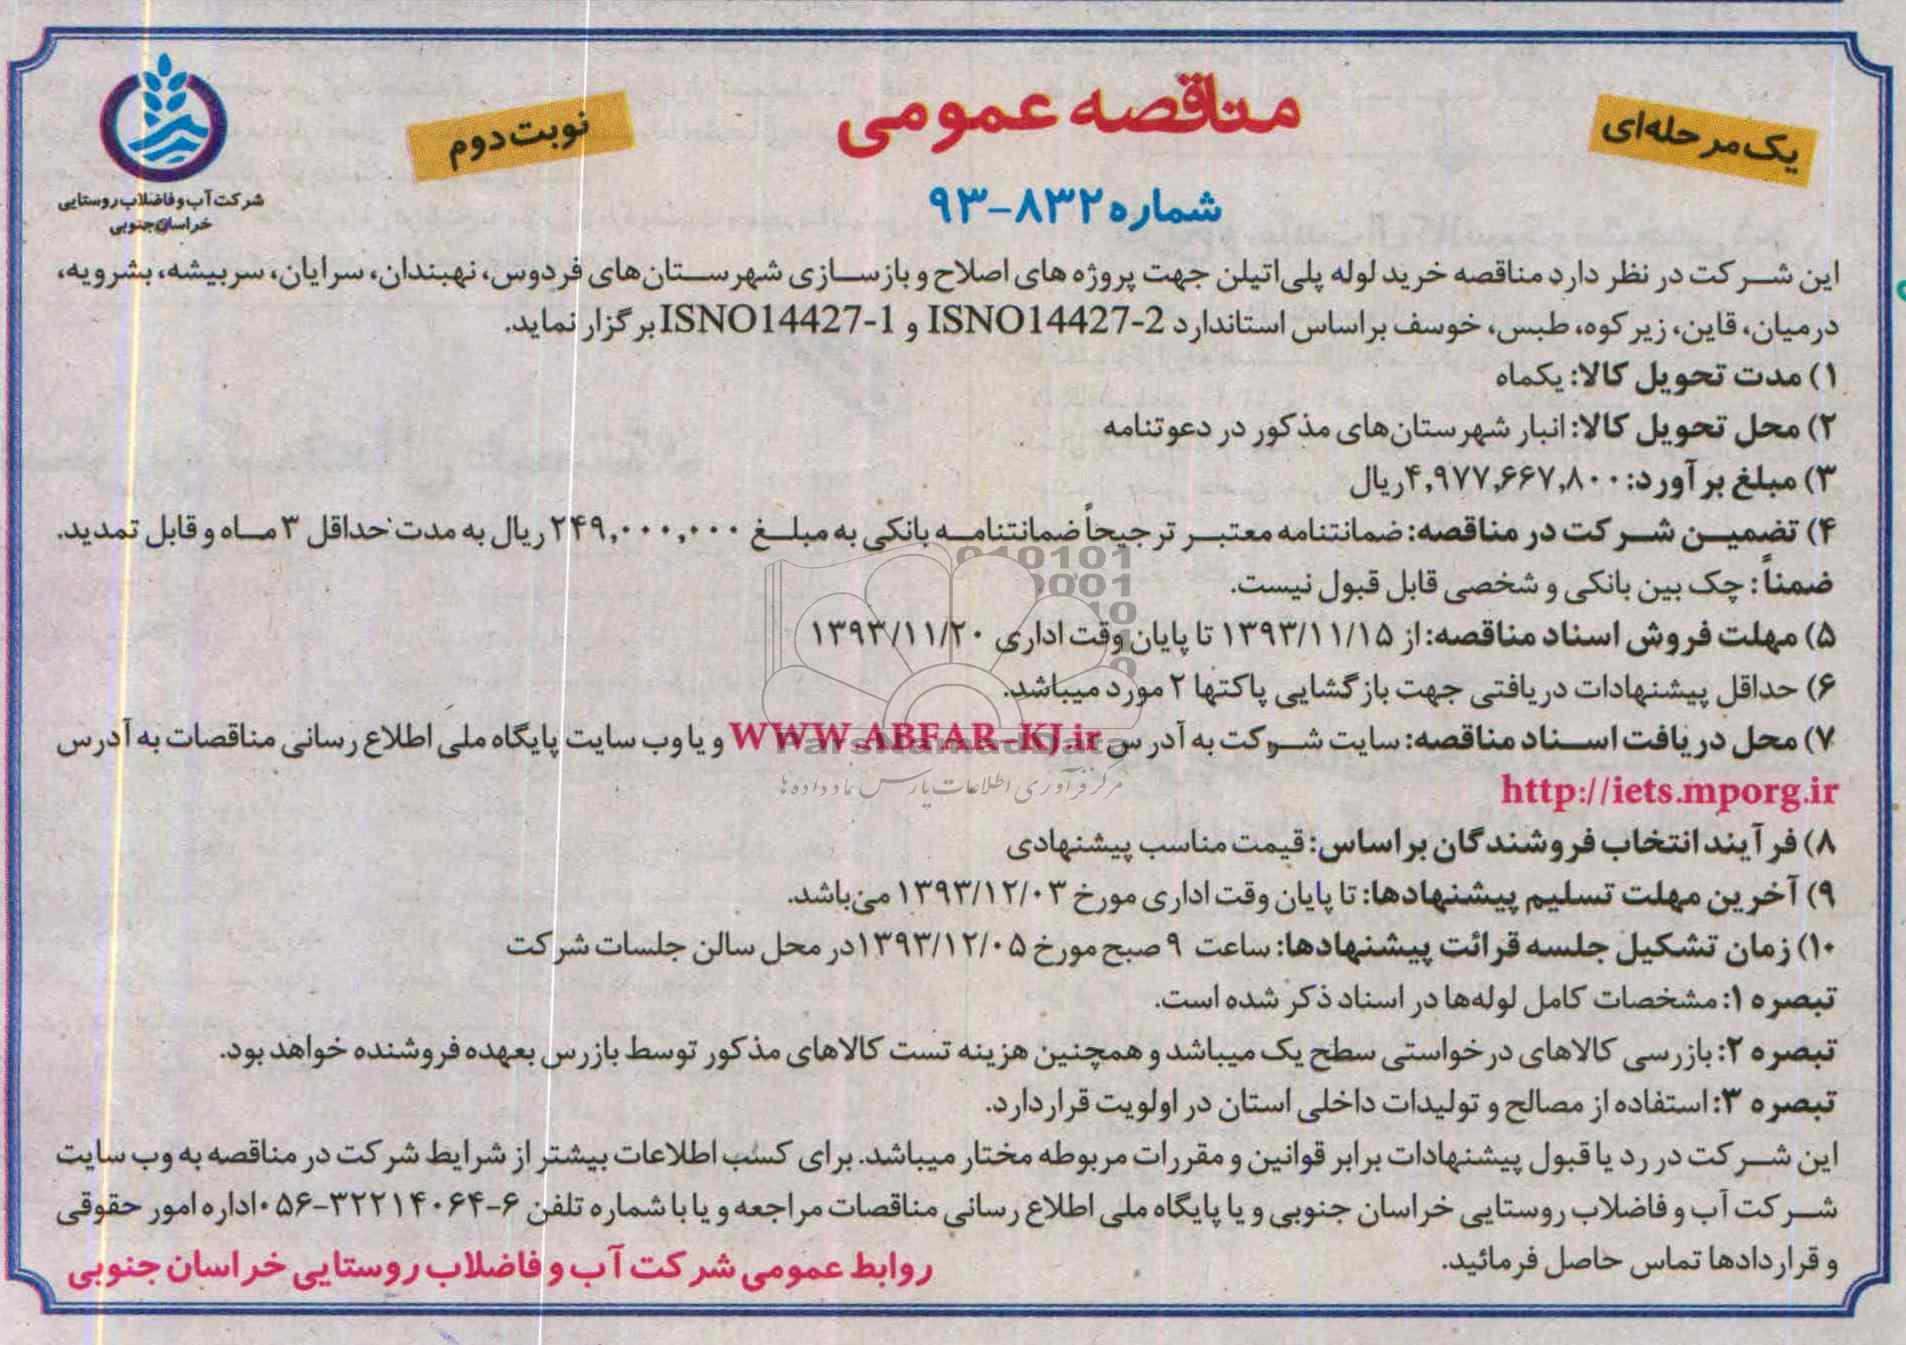 یک مرحله‌ای
مناقصه عمومی
نوبت دوم
شماره ۸۳۲-۹۳
شرکت آب و فاضلاب روستایی
خراسان جنوبی
این شرکت در نظر دارد مناقصه خرید لوله پلی‌اتیلن جهت پروژه های اصلاح و بازسازی شهرستان‌های فردوس، نهبندان، سرایان، سربیشه، بشرویه،
درمیان، قاین، زیرکوه، طبس، خوسف براساس استاندارد ISNO14427-2 و ISNO14427-1 برگزار نماید.
۱) مدت تحویل کالا: یکماه
۲) محل تحویل کالا: انبار شهرستان‌های مذکور در دعوتنامه
۳) مبلغ برآورد: ۴,۹۷۷,۶۶۷,۸۰۰ ریال
۴) تضمین شرکت در مناقصه: ضمانتنامه معتبر ترجیحاً ضمانتنامه بانکی به مبلغ ۲۴۹,۰۰۰,۰۰۰ ریال به مدت حداقل ۳ ماه و قابل تمدید.
ضمناً: چک بین بانکی و شخصی قابل قبول نیست.
۵) مهلت فروش اسناد مناقصه: از ۱۳۹۳/۱۱/۱۵ تا پایان وقت اداری ۱۳۹۳/۱۱/۲۰
۶) حداقل پیشنهادات دریافتی جهت بازگشایی پاکتها ۲ مورد میباشد.
۷) محل دریافت اسناد مناقصه: سایت شرکت به آدرس WWW.ABFAR-KJ.ir و یا وب سایت پایگاه ملی اطلاع رسانی مناقصات به آدرس
http://iets.mporg.ir
۸) فرآیند انتخاب فروشندگان براساس: قیمت مناسب پیشنهادی
۹) آخرین مهلت تسلیم پیشنهادها: تا پایان وقت اداری مورخ ۱۳۹۳/۱۲/۰۳ می‌باشد.
۱۰) زمان تشکیل جلسه قرائت پیشنهادها: ساعت ۹ صبح مورخ ۱۳۹۳/۱۲/۰۵ در محل سالن جلسات شرکت
تبصره ۱: مشخصات کامل لوله‌ها در اسناد ذکر شده است.
تبصره ۲: بازرسی کالاهای درخواستی سطح یک میباشد و همچنین هزینه تست کالاهای مذکور توسط بازرس بعهده فروشنده خواهد بود.
تبصره ۳: استفاده از مصالح و تولیدات داخلی استان در اولویت قرار دارد.
این شرکت در رد یا قبول پیشنهادات برابر قوانین و مقررات مربوطه مختار میباشد. برای کسب اطلاعات بیشتر از شرایط شرکت در مناقصه به وب سایت
شرکت آب و فاضلاب روستایی خراسان جنوبی و یا پایگاه ملی اطلاع رسانی مناقصات مراجعه و یا با شماره تلفن ۶-۳۲۲۱۴۰۶۴-۰۵۶ اداره امور حقوقی
و قراردادها تماس حاصل فرمائید.
روابط عمومی شرکت آب و فاضلاب روستایی خراسان جنوبی
ParsNamadData
مرکز فرآوری اطلاعات پارس نماد داده ها